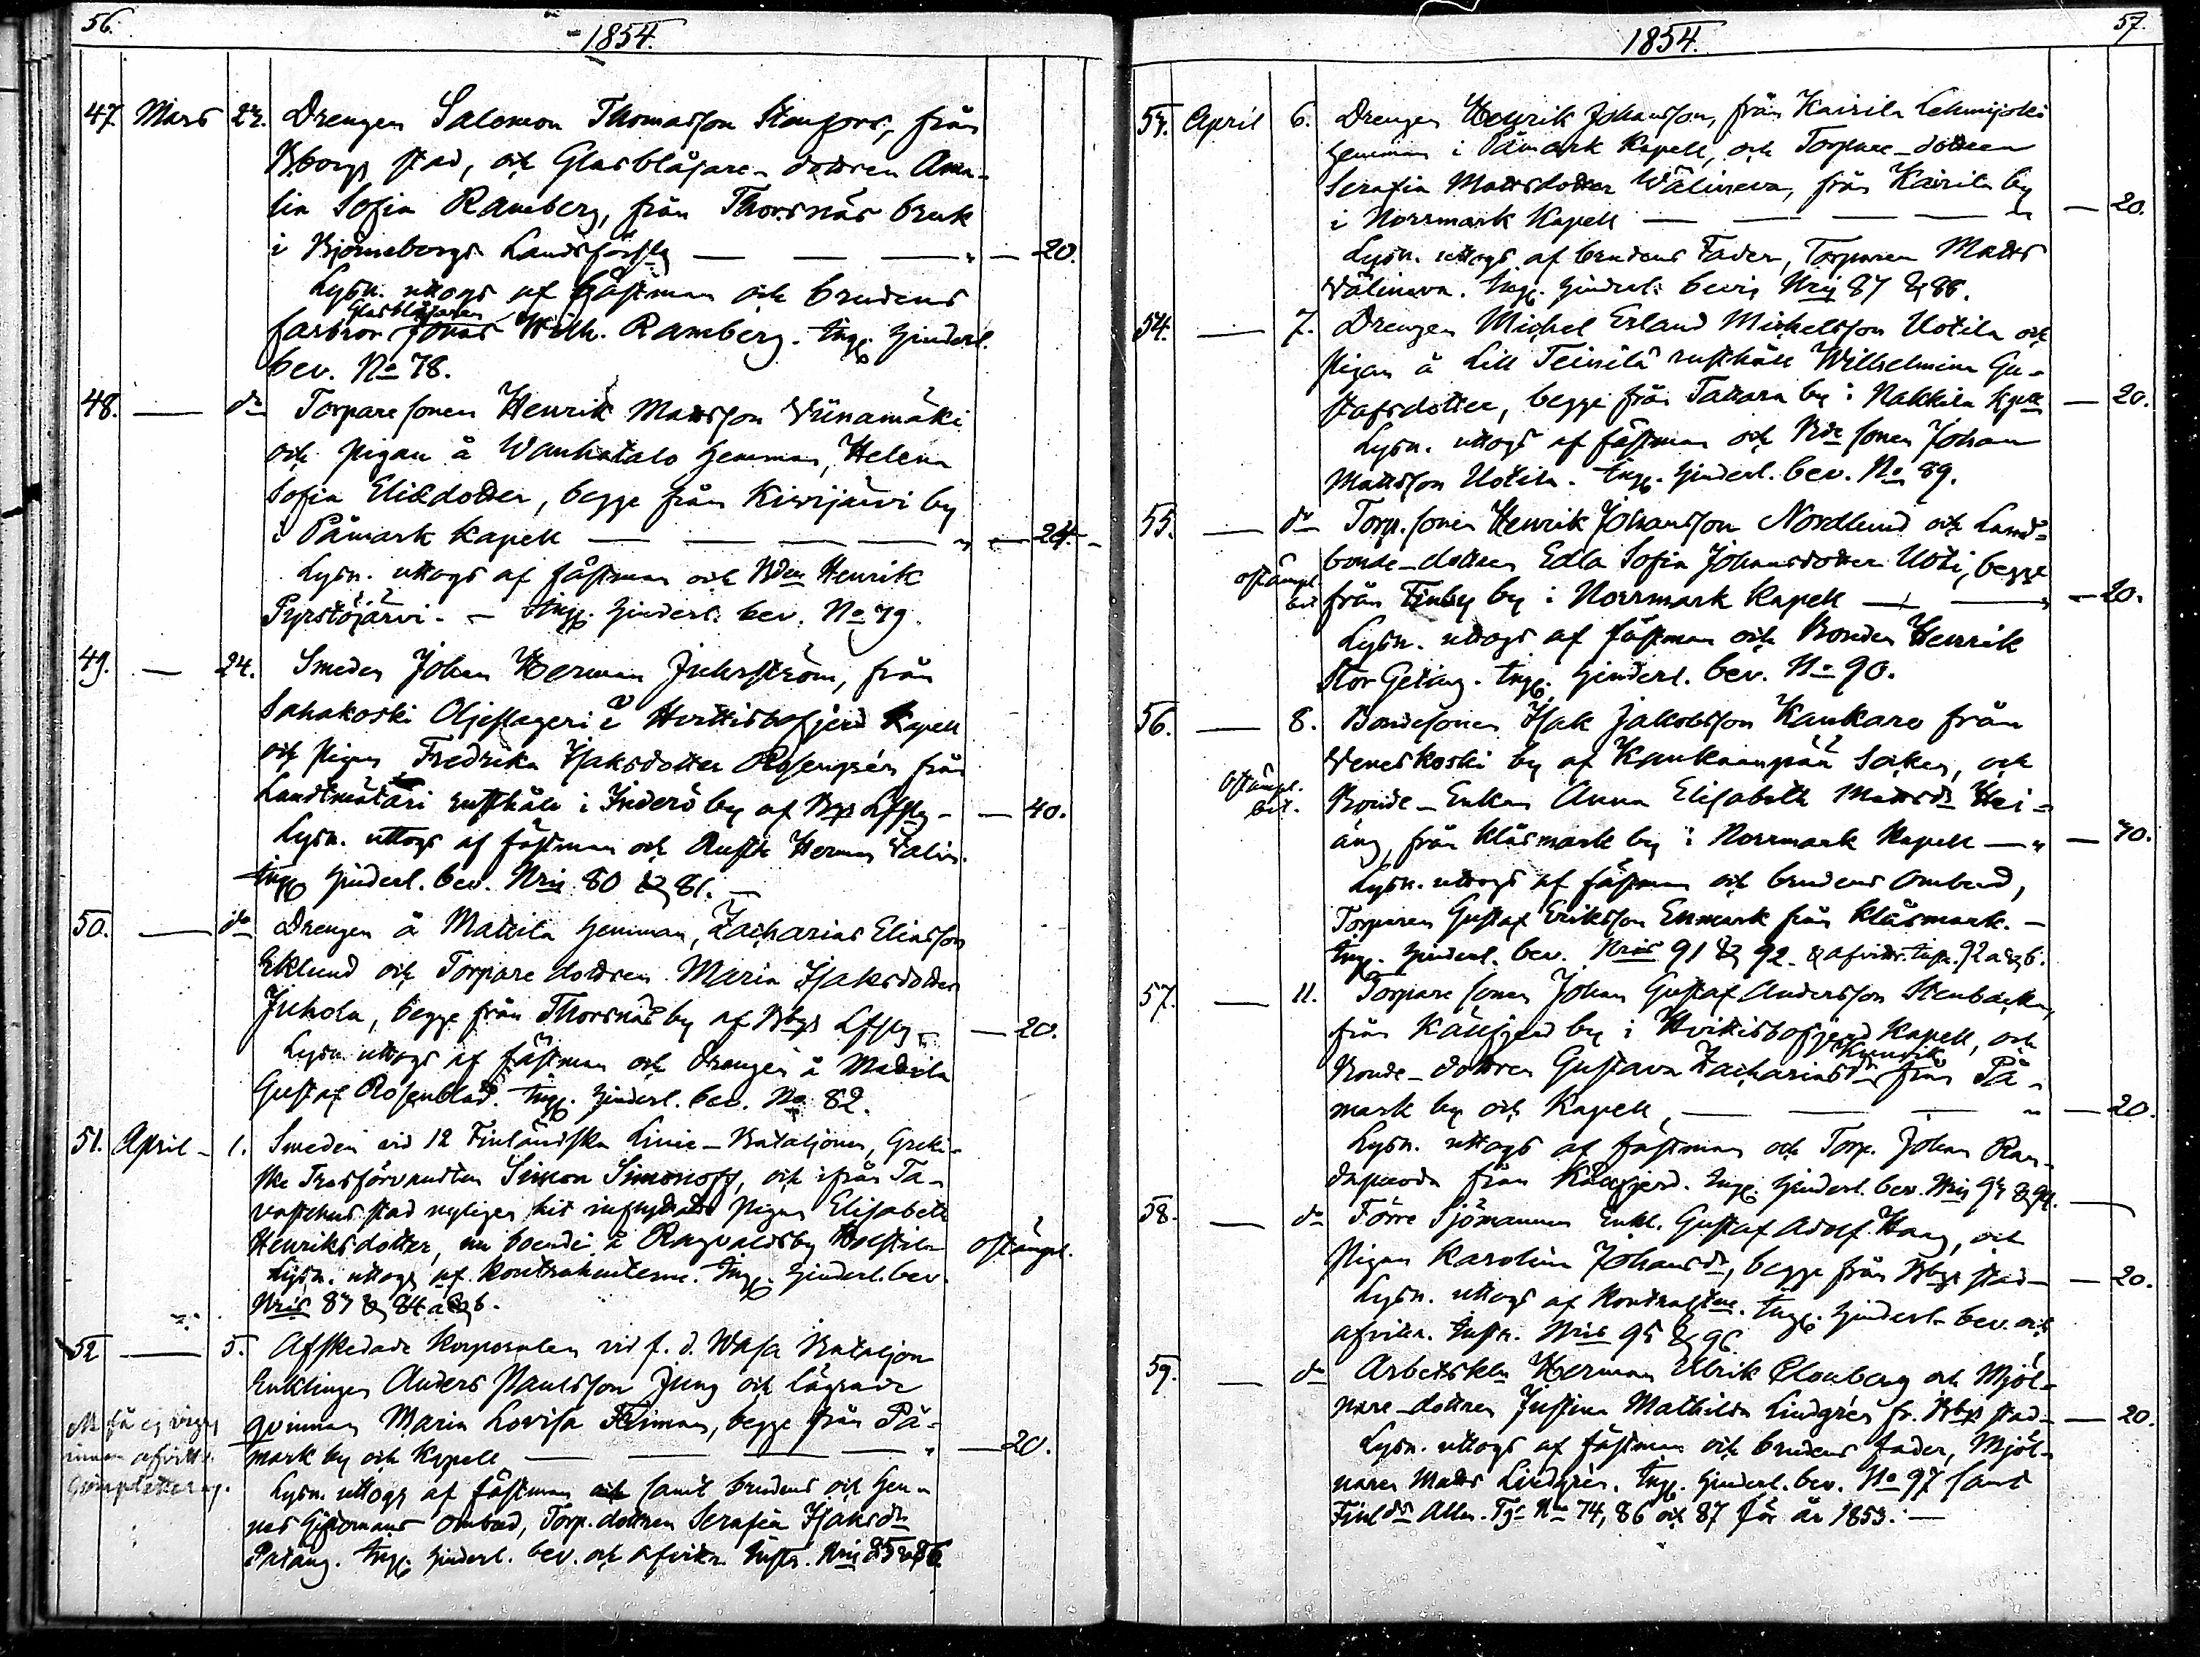 56.
1854.
47. Mars 23. Drengen Salomon Thomasson Stenfors, från
B.borgs stad, och Glasblåsare-dottren Ama-
lia Sofia Ramberg, från Thorsnäs bruk
i Björneborgs Landsförslg — — — " — 20.
Lysn. uttogs af fästman och brudens
Glasblåsaren
farbror Jonas Wilh. Ramberg. Ingg. hinderl.
bev. No 78.
48. — do Torparesonen Henrik Mattsson Viinamäki
och pigan å Wanhatalo hemman, Helena
Sofia Eliædotter, begge från Kiwijärvi by
i Påmark Kapell — — — — " — 24.
Lysn. uttogs af fästman och Bden Henrik
Pyrstöjärvi. — Ingg. hinderl. bev. No 79.
49. — 24. Smeden Johan Herman Juhrström, från
Sahakoski Oljeslageri i Hvittisbofjerd Kapell
och pigan Fredrika Isaksdotter Rosengrén från
Landtmätari rusthåll i Inderö by af Bgs Lfslg — — 40.
Lysn. uttogs af fästman och Rusth. Herman Valin.
Ingg. hinderl. bev. Nris 80 & 81. —
50. — do Drengen å Mattila hemman, Zacharias Eliasson
Eklund och Torpare dottren Maria Isaksdotter
Juhola, begge från Thorsnäs by af Bbgs Lfslg — — 20.
Lysn. uttogs af fästman och drengen å Mattila
Gustaf Rosenblad. Ingg. hinderl. bev. No 82.
51. April — 1. Smeden vid 12 Finländska Linie-Bataljonen, Greki-
ske Trosförvandten Simon Simonoff, och ifrån Ta-
vastehus stad nyligen hit inflyttade pigan Elisabeth
Henriksdotter, nu boende å Ragvaldsby Holstila ostämpl.
Lysn. uttogs af Kontrahenterne. Ingg. hinderl. bev.
Nris 83 & 84 a & b.
52 — 5. Afskedade korporalen vid f. d. Wasa Bataljon
Enklingen Anders Paulsson Jung och lägrade
qvinnan Maria Lovisa Heiman, begge från På-
mark by och Kapell — — — — " — 20.
Må få ej vigas
innan afvittr.
Completteras.
Lysn. uttogs af fästman samt brudens och hen-
nes Giftomans ombud, Torp.dottren Serafia Isaksdr
Patang. Ingg. hinderl. bev. och afvittr. instr. Nris 85 & 86.
57.
1854.
53. April 6. Drengen Henrik Johansson, från Kairila Lehmijoki
hemman i Påmark Kapell, och Torpare-dottren
Serafia Mattsdotter Wälineva, från Kairila by
i Norrmark Kapell — — — — " — 20.
Lysn. uttogs af brudens Fader, Torparen Matts
Välineva. Ingg. hinderl. bevis Nris 87 & 88.
54. — 7. Drengen Michel Erland Michelsson Uotila och
pigan å Lill Teinilä rusthåll Wilhelmina Gu-
stafsdotter, begge från Tattara by i Nakkila Kpell — 20.
Lysn. uttogs af fästman och Bde sonen Johan
Mattsson Uotila. Ingg. hinderl. bev. No 89.
55. — do Torp.sonen Henrik Johansson Nordlund och Land-
bonde-dottren Edla Sofia Johansdotter Uoti, begge
ostämpl.
bev. från Finby by i Norrmark Kapell — — " — 20.
Lysn. uttogs af fästman och Bonden Henrik
Stor Getäng. Ingg. hinderl. bev. No 90.
56. — 8. Bondesonen Isak Jakobsson Kankare från
Veneskoski by af Kankaanpää Socken, och
ostämpl.
bev. Bonde-Enkan Anna Elisabeth Mattsdr Hei-
äng, från Klåsmark by i Norrmark Kapell — " — 40.
Lysn. uttogs af fästman och brudens ombud,
Torparen Gustaf Eriksson Enmark från Klåsmark. —
Ingg. hinderl. bev. Nris 91 & 92. & afvittr. instr. 92 a & b.
57. — 11. Torpare sonen Johan Gustaf Andersson Stenbacka,
från Källfjerd by i Hvittisbofjerd Kapell, och
Bonde-dottren Gustava Zachariasdr från På-
mark by och Kapell, — — — " — 20.
Lysn. uttogs af fästman och Torp. Johan Ran-
från Källfjerd. Ingg. hinderl. bev. Nris 93 & 94.
58. — do Förre Sjömannen Enkl. Gustaf Adolf Haag, och
pigan Karolina Johansdr, begge från Bbgs stad — — 20.
Lysn. uttogs af Kontrahterne. Ingg. hinderl. bev. och
afvittr. instr. Nris 95 & 96
59. — do Arbetskln Herman Ulrik Clonberg och Mjöl-
nare-dottren Justina Mathilda Lindgrén fr. Bbgs stad — — 20.
Lysn. uttogs af fästman och brudens fader, Mjöl-
naren Matts Lindgrén. Ingg. hinderl. bev. No 97 samt
Finlds Allm. Tgr No 74, 86 och 87 för år 1853. —